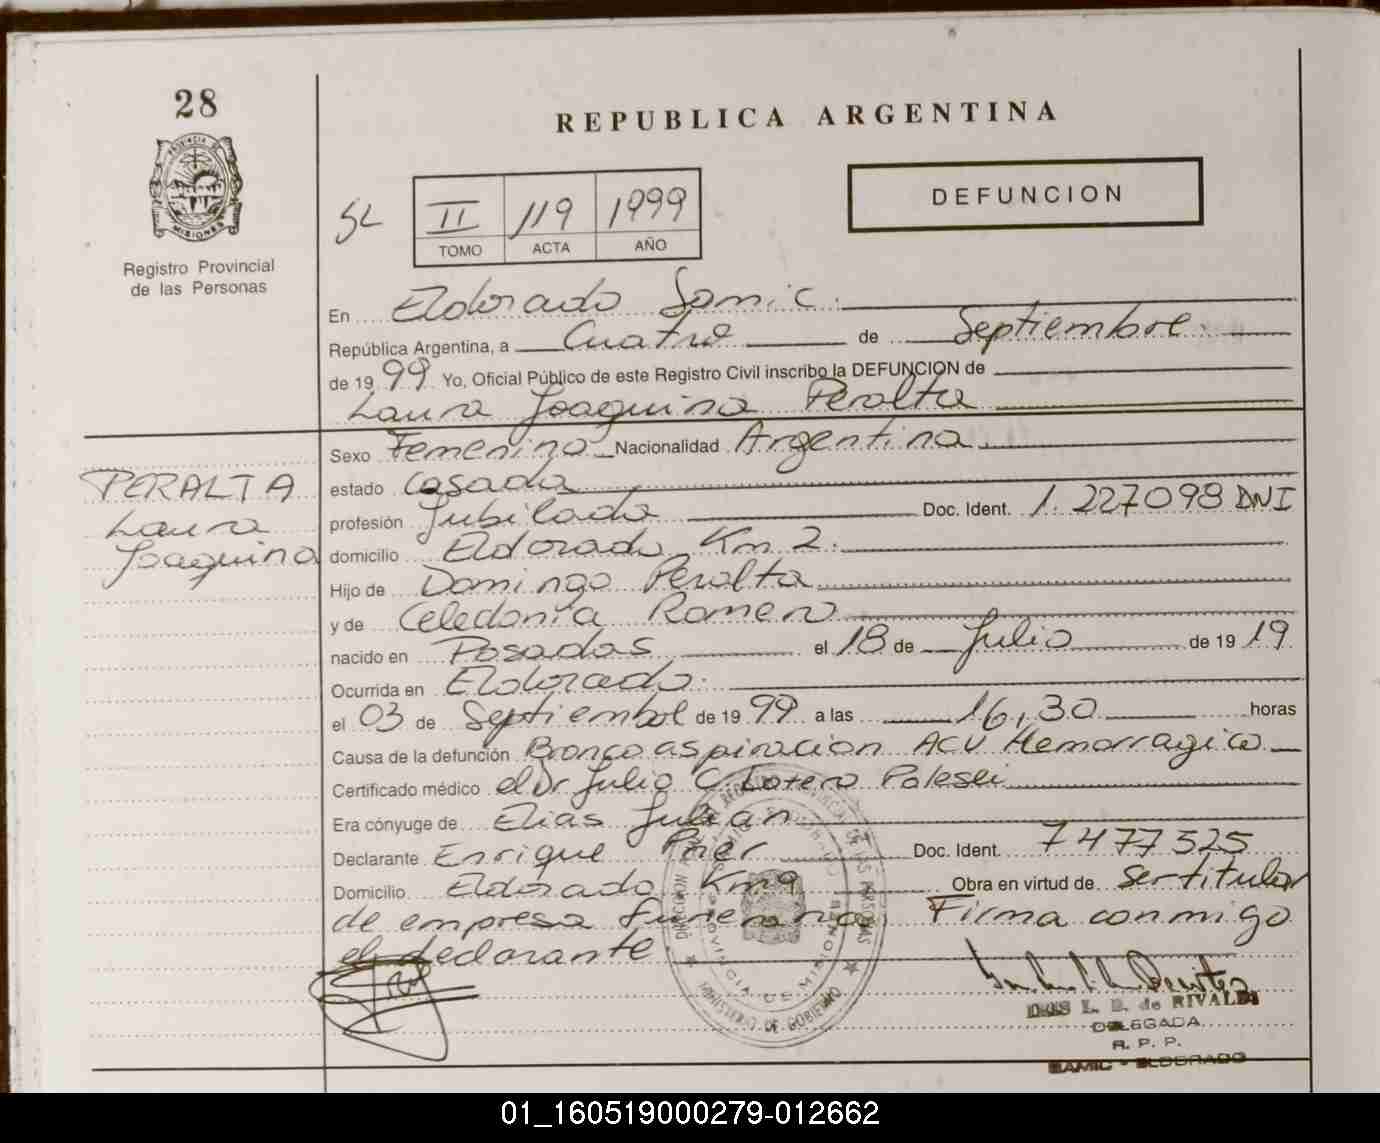 28
PROVINCIA DE
MISIONES
Registro Provincial
de las Personas
REPUBLICA ARGENTINA
DEFUNCION
SL II 119 1999
TOMO ACTA AÑO
En Eldorado Samic.
República Argentina, a Cuatro de Septiembre
de 1999 Yo, Oficial Público de este Registro Civil inscribo la DEFUNCION de
Laura Joaquina Peralta
PERALTA
Laura
Joaquina
Sexo Femenino Nacionalidad Argentina
estado casada
profesión Jubilada Doc. Ident. 1.227098 DNI
domicilio Eldorado Km 2.
Hijo de Domingo Peralta
y de Celedonia Romero
nacido en Posadas el 18 de Julio de 1919
Ocurrida en Eldorado.
el 03 de Septiembre de 1999 a las 16,30 horas
Causa de la defunción Bronco aspiracion ACV Hemorragico
Certificado médico el Dr Julio C. Lotero Palesei
Era cónyuge de Elias Julian
Declarante Enrique Doc. Ident. 7477325
Domicilio Eldorado Km 9 Obra en virtud de ser titular
de empresa funeraria. Firma conmigo
el declarante
PROVINCIA DE MISIONES
MINISTERIO DE GOBIERNO
L. B. de RIVALDI
DELEGADA
R. P. P.
SAMIC - ELDORADO
01_160519000279-012662